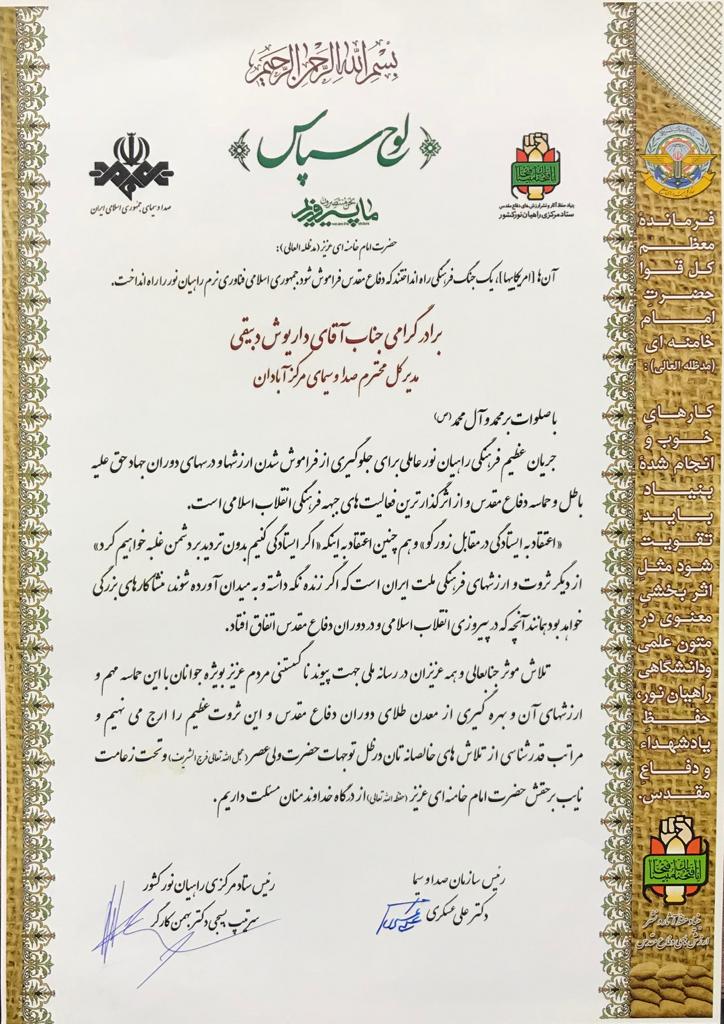 بسم الله الرحمن الرحیم
لوح سپاس
صدا و سیمای جمهوری اسلامی ایران
ما پیروزیم
بنیاد حفظ آثار و نشر ارزش‌های دفاع مقدس
ستاد مرکزی راهیان نور کشور
حضرت امام خامنه ای عزیز (مدظله العالی):
آن‌ها [امریکاییها]، یک جنگ فرهنگی راه انداختند که دفاع مقدس فراموش شود، جمهوری اسلامی فناوری نرم راهیان نور را راه انداخت.
برادر گرامی جناب آقای داریوش دبیقی
مدیر کل محترم صدا و سیمای مرکز آبادان
با صلوات بر محمد و آل محمد (ص)
جریان عظیم فرهنگی راهیان نور عاملی برای جلوگیری از فراموش شدن ارزشها و درسهای دوران جهاد حق علیه
باطل و حماسه دفاع مقدس و از اثرگذارترین فعالیت های جبهه فرهنگی انقلاب اسلامی است.
«اعتقاد به ایستادگی در مقابل زورگو» و هم چنین اعتقاد به اینکه «اگر ایستادگی کنیم بدون تردید بر دشمن غلبه خواهیم کرد»
از دیگر ثروت و ارزشهای فرهنگی ملت ایران است که اگر زنده نگه داشته و به میدان آورده شوند، منشا کارهای بزرگی
خواهد بود همانند آنچه که در پیروزی انقلاب اسلامی و در دوران دفاع مقدس اتفاق افتاد.
تلاش موثر جنابعالی و همه عزیزان در رسانه ملی جهت پیوند ناگسستنی مردم عزیز بویژه جوانان با این حماسه مهم و
ارزشهای آن و بهره گیری از معدن طلای دوران دفاع مقدس و این ثروت عظیم را ارج می نهیم و
مراتب قدرشناسی از تلاش های خالصانه تان در ظل توجهات حضرت ولی عصر (عجل الله تعالی فرجه الشریف) و تحت زعامت
نایب برحقش حضرت امام خامنه ای عزیز (حفظه الله تعالی) از درگاه خداوند منان مسئلت داریم.
رئیس سازمان صدا و سیما
دکتر علی عسکری
رئیس ستاد مرکزی راهیان نور کشور
سرتیپ بسیجی دکتر بهمن کارگر
فرماندهٔ
معظم
کل قوا
حضرت
امام
خامنه ای
(مدظله العالی):
کارهایِ
خوب و
انجام شدهٔ
بنیاد
باید
تقویت
شود مثلِ
اثر بخشیِ
معنوی در
متون علمی
ودانشگاهی
راهیان نور،
حفظ
یادشهداء
و دفاعِ
مقدس.
إنا فتحنا لک فتحا مبینا
بنیاد حفظ آثار و نشر
ارزش های دفاع مقدس